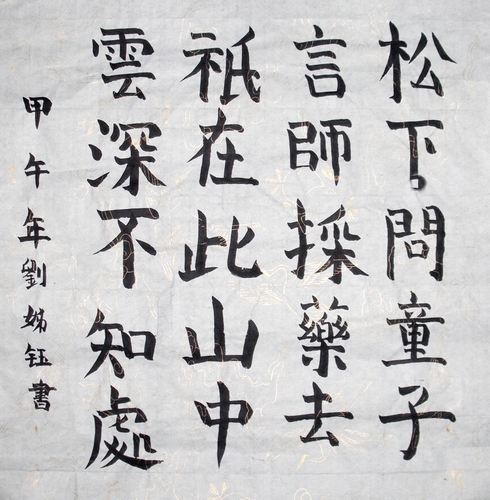 松下問童子
言師採藥去
祇在此山中
雲深不知處
甲午年劉姊鈺書